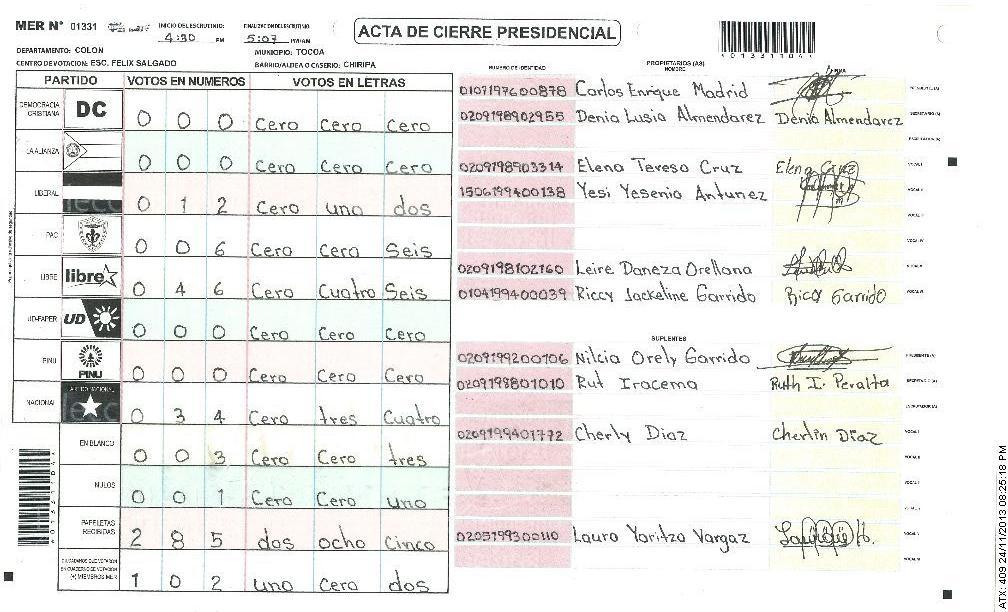 MER Nº 01331 INICIO DEL ESCRUTINIO 4:30 PM FINALIZACION DEL ESCRUTINIO 5:07 PM/AM
ACTA DE CIERRE PRESIDENCIAL
DEPARTAMENTO: COLON MUNICIPIO: TOCOA
CENTRO DE VOTACION: ESC. FELIX SALGADO BARRIO/ALDEA O CASERIO: CHIRIPA
PARTIDO VOTOS EN NUMEROS VOTOS EN LETRAS
DEMOCRACIA CRISTIANA DC 0 0 0 Cero Cero Cero
LA ALIANZA 0 0 0 Cero Cero Cero
LIBERAL 0 1 2 Cero uno dos
PAC 0 0 6 Cero Cero Seis
LIBRE libre 0 4 6 Cero Cuatro Seis
UD-FAPER UD 0 0 0 Cero Cero Cero
PINU PINU 0 0 0 Cero Cero Cero
NACIONAL 0 3 4 Cero tres Cuatro
EN BLANCO 0 0 3 Cero Cero tres
NULOS 0 0 1 Cero Cero uno
PAPELETAS RECIBIDAS 2 8 5 dos ocho Cinco
CIUDADANOS QUE VOTARON EN CUADERNO DE VOTACION (+) MIEMBROS MER 1 0 2 uno Cero dos
NUMERO DE IDENTIDAD PROPIETARIOS (AS) NOMBRE FIRMA
0107197600878 Carlos Enrique Madrid PRESIDENTE (A)
0209198902955 Denia Lusia Almendarez Denia Almendarez SECRETARIO (A)
ESCRUTADOR (A)
0209198903314 Elena Teresa Cruz Elena Cruz VOCAL I
1506199400138 Yesi Yesenia Antunez VOCAL II
VOCAL III
VOCAL IV
0209198102160 Leire Daneza Orellana VOCAL V
0104199400039 Riccy Jackeline Garrido Riccy Garrido VOCAL VI
SUPLENTES
0209199200106 Nilcia Orely Garrido PRESIDENTE (A)
0209198801010 Rut Iracema Ruth I. Peralta SECRETARIO (A)
ESCRUTADOR (A)
0209199401772 Cherly Diaz Cherlin Diaz VOCAL I
VOCAL II
0205199300110 Laura Yaritza Vargaz
ATX: 409 24/11/2013 08:25:18 PM